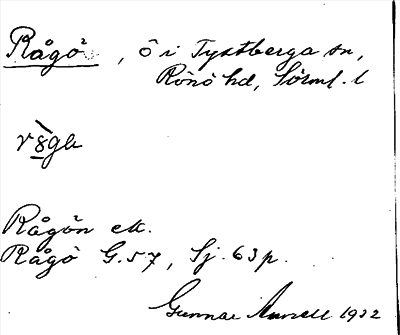 Rågö, ö i Tystberga sn,
Rönö hd, Sörml. l
Rågön ek.
Rågö G.57, Sj. 63 p.
Gunnar 1932